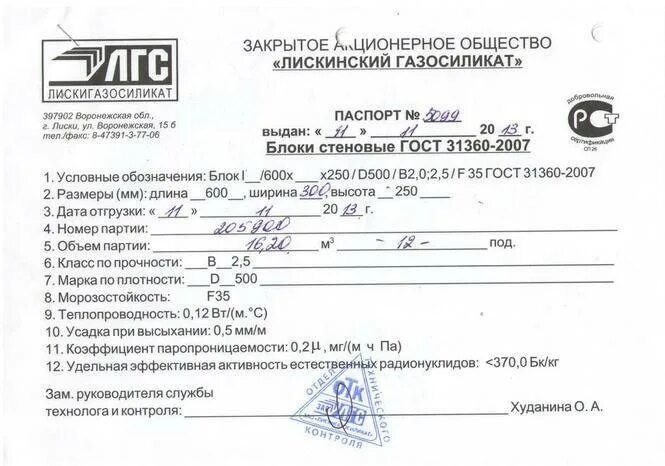 ЛГС
ЛИСКИГАЗОСИЛИКАТ
397902 Воронежская обл.,
г. Лиски, ул. Воронежская, 15 б
тел./факс: 8-47391-3-77-06
ЗАКРЫТОЕ АКЦИОНЕРНОЕ ОБЩЕСТВО
«ЛИСКИНСКИЙ ГАЗОСИЛИКАТ»
ПАСПОРТ № 5099
выдан: « 11 » 11 20 13 г.
Блоки стеновые ГОСТ 31360-2007
добровольная
РСТ
сертификация
СП 26
1. Условные обозначения: Блок I__/600х____х250 / D500 / В2,0; 2,5 / F 35 ГОСТ 31360-2007
2. Размеры (мм): длина __600__, ширина 300, высота - 250
3. Дата отгрузки: « 11 » 11 20 13 г.
4. Номер партии: 205900
5. Объем партии: 16,20 м³ - 12 - под.
6. Класс по прочности: В 2,5
7. Марка по плотности: D 500
8. Морозостойкость: F35
9. Теплопроводность: 0,12 Вт/(м.°С)
10. Усадка при высыхании: 0,5 мм/м
11. Коэффициент паропроницаемости: 0,2μ, мг/(м ч Па)
12. Удельная эффективная активность естественных радионуклидов: <370,0 Бк/кг
Зам. руководителя службы
технолога и контроля:
Худанина О. А.
ОТДЕЛ
ТЕХНИЧЕСКОГО
КОНТРОЛЯ
ОТК
ЛГС